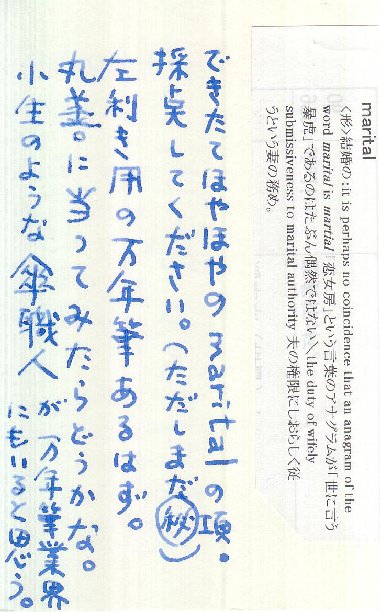 marital
〈形〉結婚の:it is perhaps no coincidence that an anagram of the
word marital is martial「恋女房」という言葉のアナグラムが「世に言う
暴虎」であるのはたぶん偶然ではない＼the duty of wifely
submissiveness to marital authority 夫の権限にしおらしく従
うという妻の務め。
できたてほやほやのmaritalの項。
採点してください。(ただしまだ㊙)
左利き用の万年筆あるはず。
丸善。に当ってみたらどうかな。
小生のような傘職人が万年筆業界
にもいると思う。